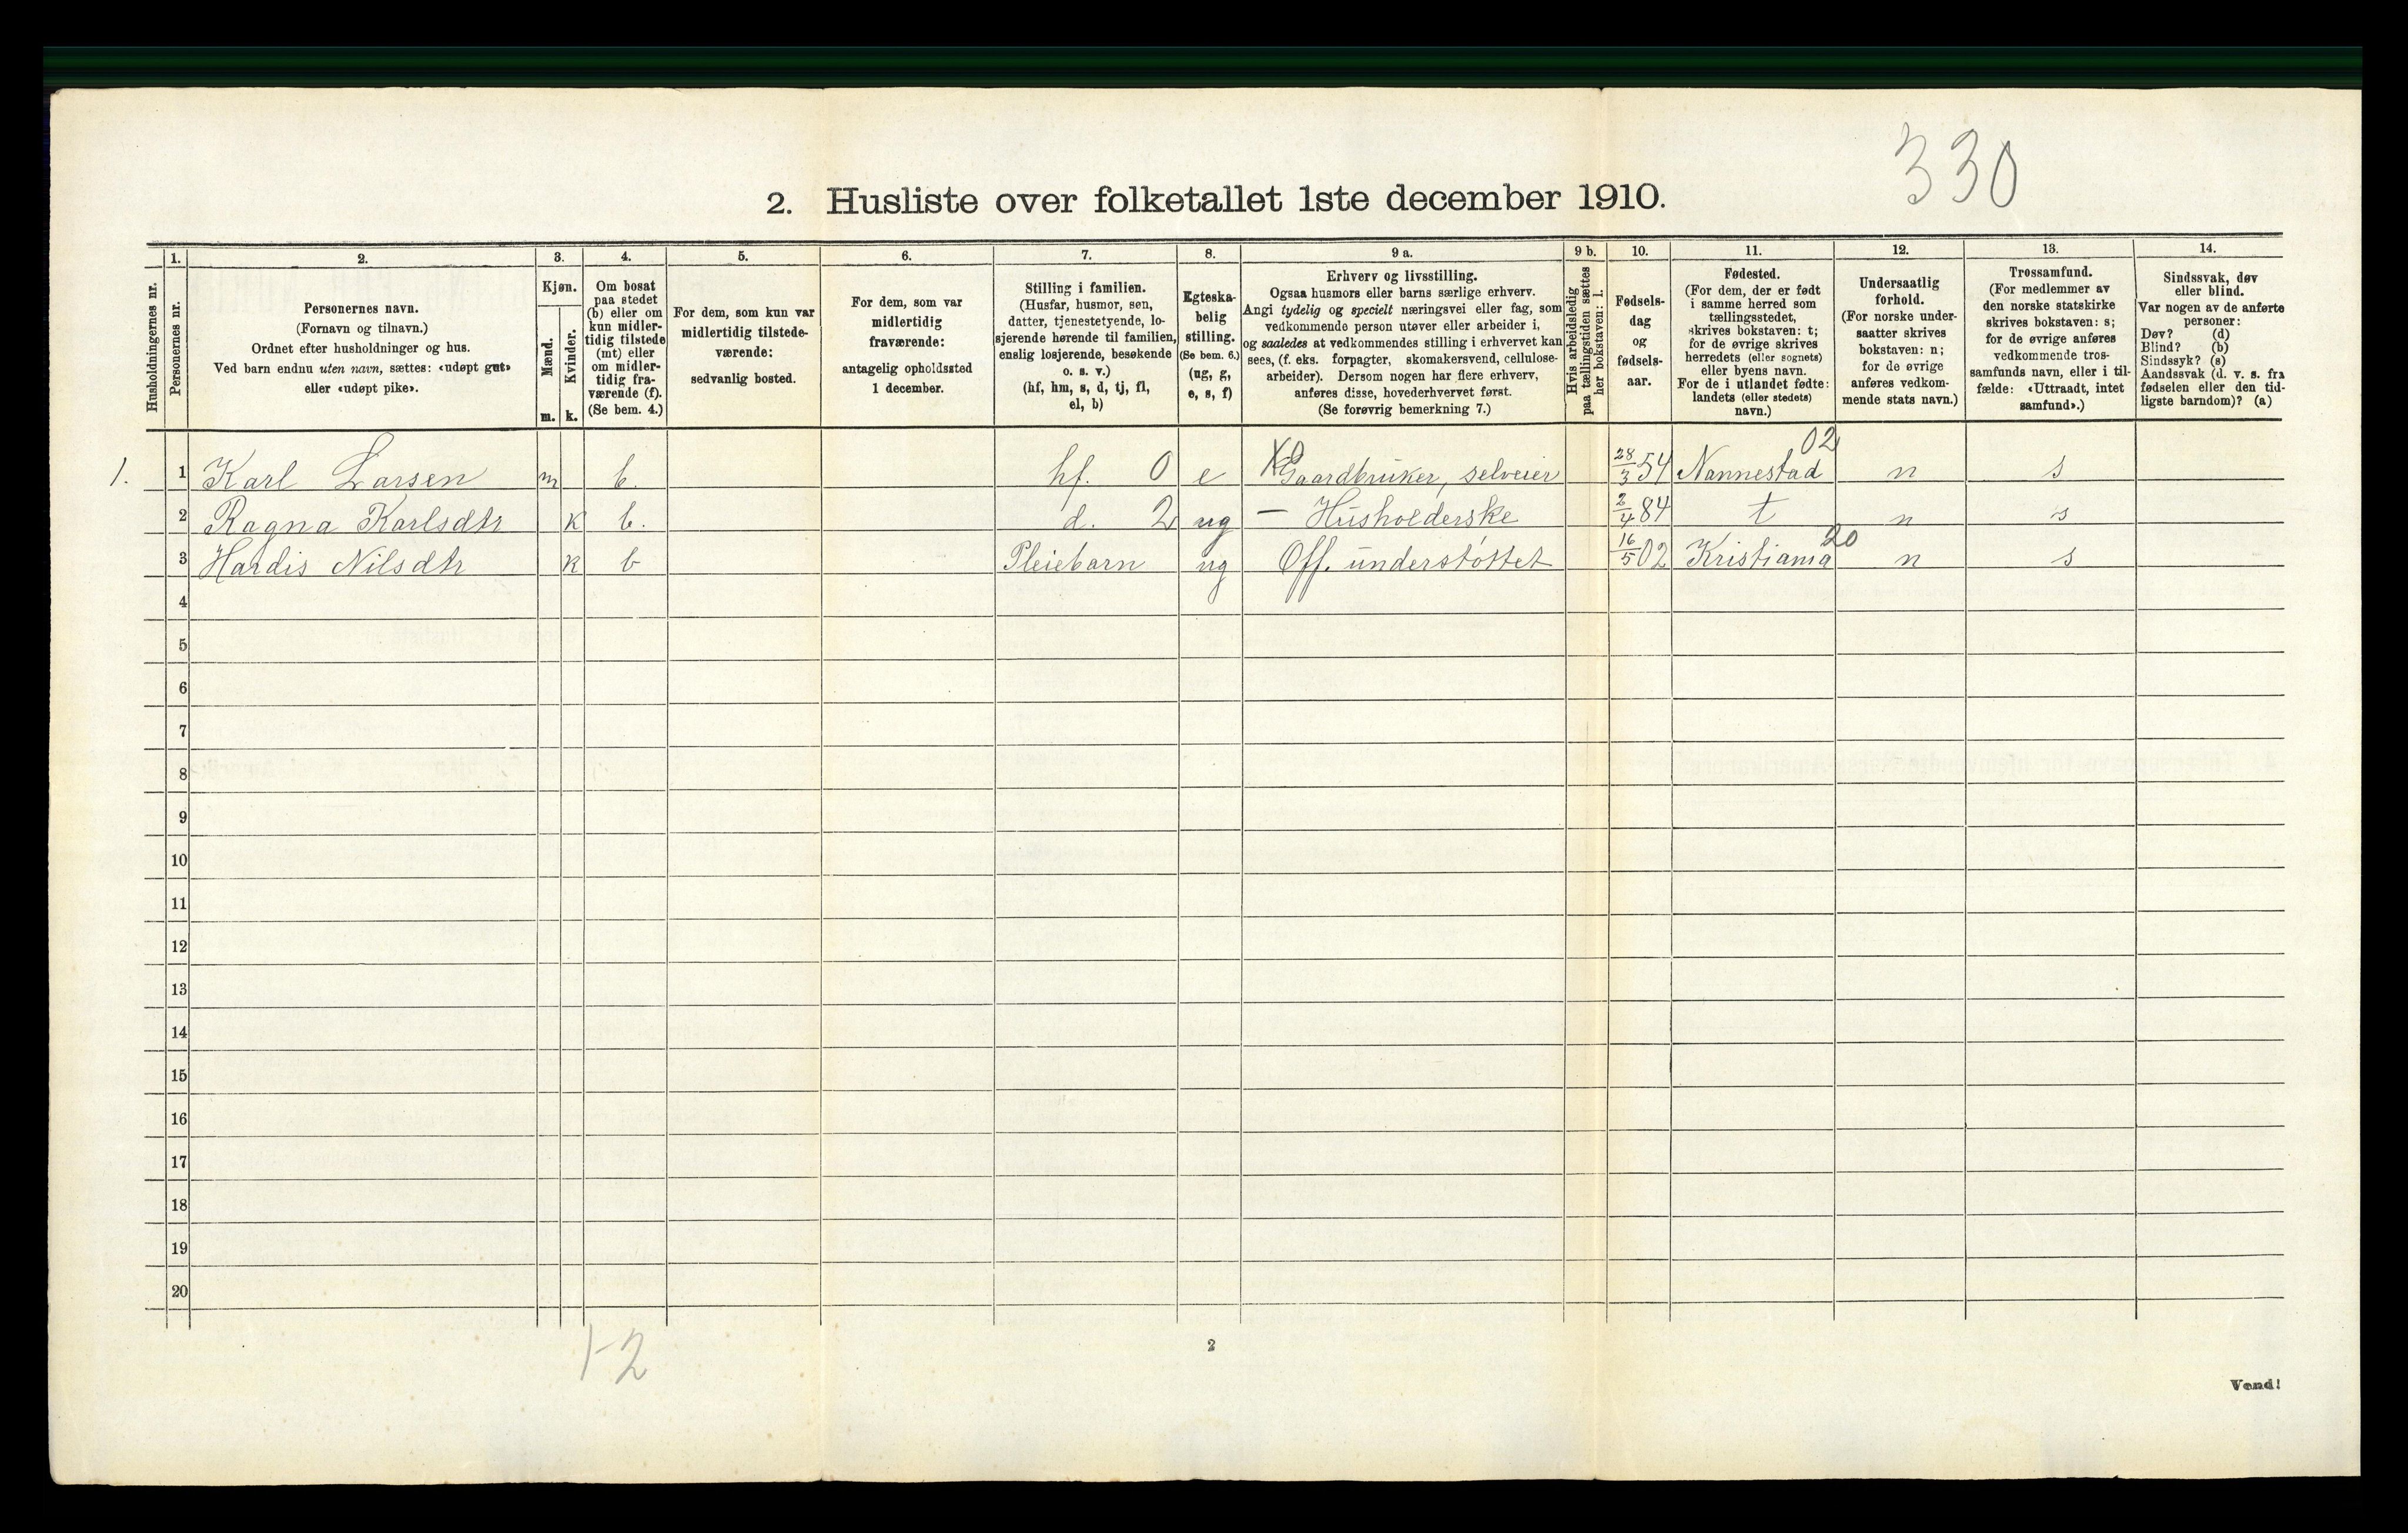 330
2. Husliste over folketallet 1ste december 1910.
Husholdningernes nr.
1.
Personernes nr.
2.
Personernes navn.
(Fornavn og tilnavn.)
Ordnet efter husholdninger og hus.
Ved barn endnu uten navn, sættes: «udøpt gut»
eller «udøpt pike».
3.
Kjøn.
Mænd.
m.
Kvinder.
k.
4.
Om bosat
paa stedet
(b) eller om
kun midler-
tidig tilstede
(mt) eller
om midler-
tidig fra-
værende (f).
(Se bem. 4.)
5.
For dem, som kun var
midlertidig tilstede-
værende:
sedvanlig bosted.
6.
For dem, som var
midlertidig
fraværende:
antagelig opholdssted
1 december.
7.
Stilling i familien.
(Husfar, husmor, søn,
datter, tjenestetyende, lo-
sjerende hørende til familien,
enslig losjerende, besøkende
o. s. v.)
(hf, hm, s, d, tj, fl,
el, b)
8.
Egteska-
belig
stilling.
(Se bem. 6.)
(ug, g,
e, s, f)
9 a.
Erhverv og livsstilling.
Ogsaa husmors eller barns særlige erhverv.
Angi tydelig og specielt næringsvei eller fag, som
vedkommende person utøver eller arbeider i,
og saaledes at vedkommendes stilling i erhvervet kan
sees, (f. eks. forpagter, skomakersvend, cellulose-
arbeider). Dersom nogen har flere erhverv,
anføres disse, hovederhvervet først.
(Se forøvrig bemerkning 7.)
9 b.
Hvis arbeidsledig
paa tællingstiden sættes
her bokstaven: l.
10.
Fødsels-
dag
og
fødsels-
aar.
11.
Fødested.
(For dem, der er født
i samme herred som
tællingsstedet,
skrives bokstaven: t;
for de øvrige skrives
herredets (eller sognets)
eller byens navn.
For de i utlandet fødte:
landets (eller stedets)
navn.)
12.
Undersaatlig
forhold.
(For norske under-
saatter skrives
bokstaven: n;
for de øvrige
anføres vedkom-
mende stats navn.)
13.
Trossamfund.
(For medlemmer av
den norske statskirke
skrives bokstaven: s;
for de øvrige anføres
vedkommende tros-
samfunds navn, eller i til-
fælde: «Uttraadt, intet
samfund».)
14.
Sindssvak, døv
eller blind.
Var nogen av de anførte
personer:
Døv? (d)
Blind? (b)
Sindssyk? (s)
Aandssvak (d. v. s. fra
fødselen eller den tid-
ligste barndom)? (a)
1. 1 Karl Larsen m b. hf. 0 e Gaardbruker, selveier 28/3 54 Nannestad 02 n s
2 Ragna Karlsdtr k b. d. 2 ug — Husholderske 2/4 84 t n s
3 Hardis Nilsdtr k b Pleiebarn ug Off. understøttet 16/5 02 Kristiania 20 n s
4
5
6
7
8
9
10
11
12
13
14
15
16
17
18
19
20
1-2
2
Vend!